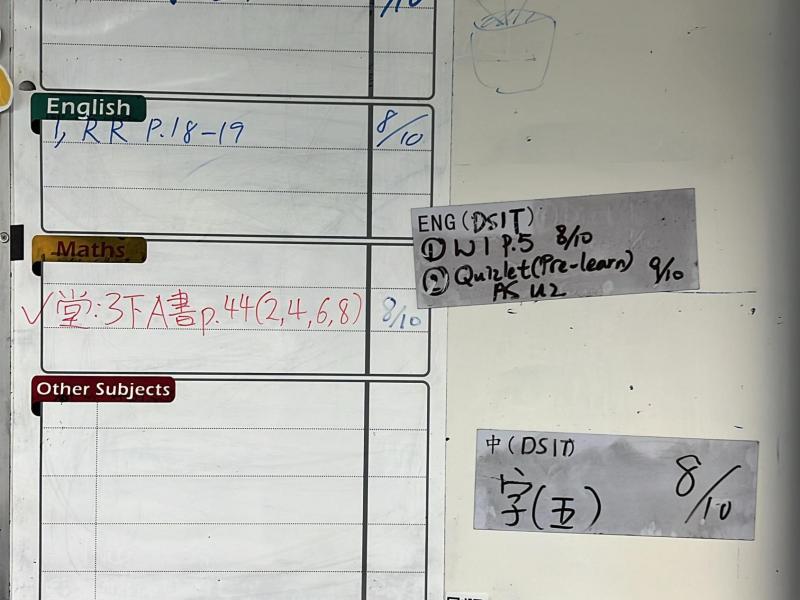 /10
English
1, RR P.18-19 8/10
ENG (DSIT)
① W1 P.5 8/10
② Quizlet (Pre-learn) 9/10
AS U2
Maths
✓堂:3下A書p.44(2,4,6,8) 8/10
Other Subjects
中(DSIT)
字(五) 8/10